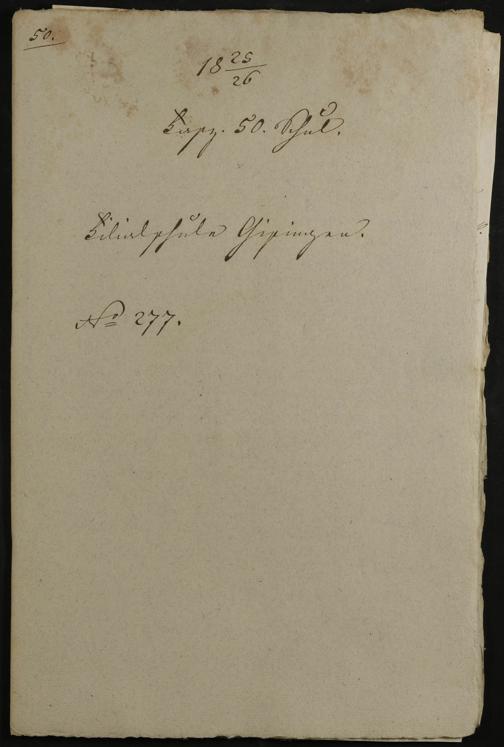 50.
18 25/26
Fasz. 50. Schul.
Filialschule Gisingen.
No 277.